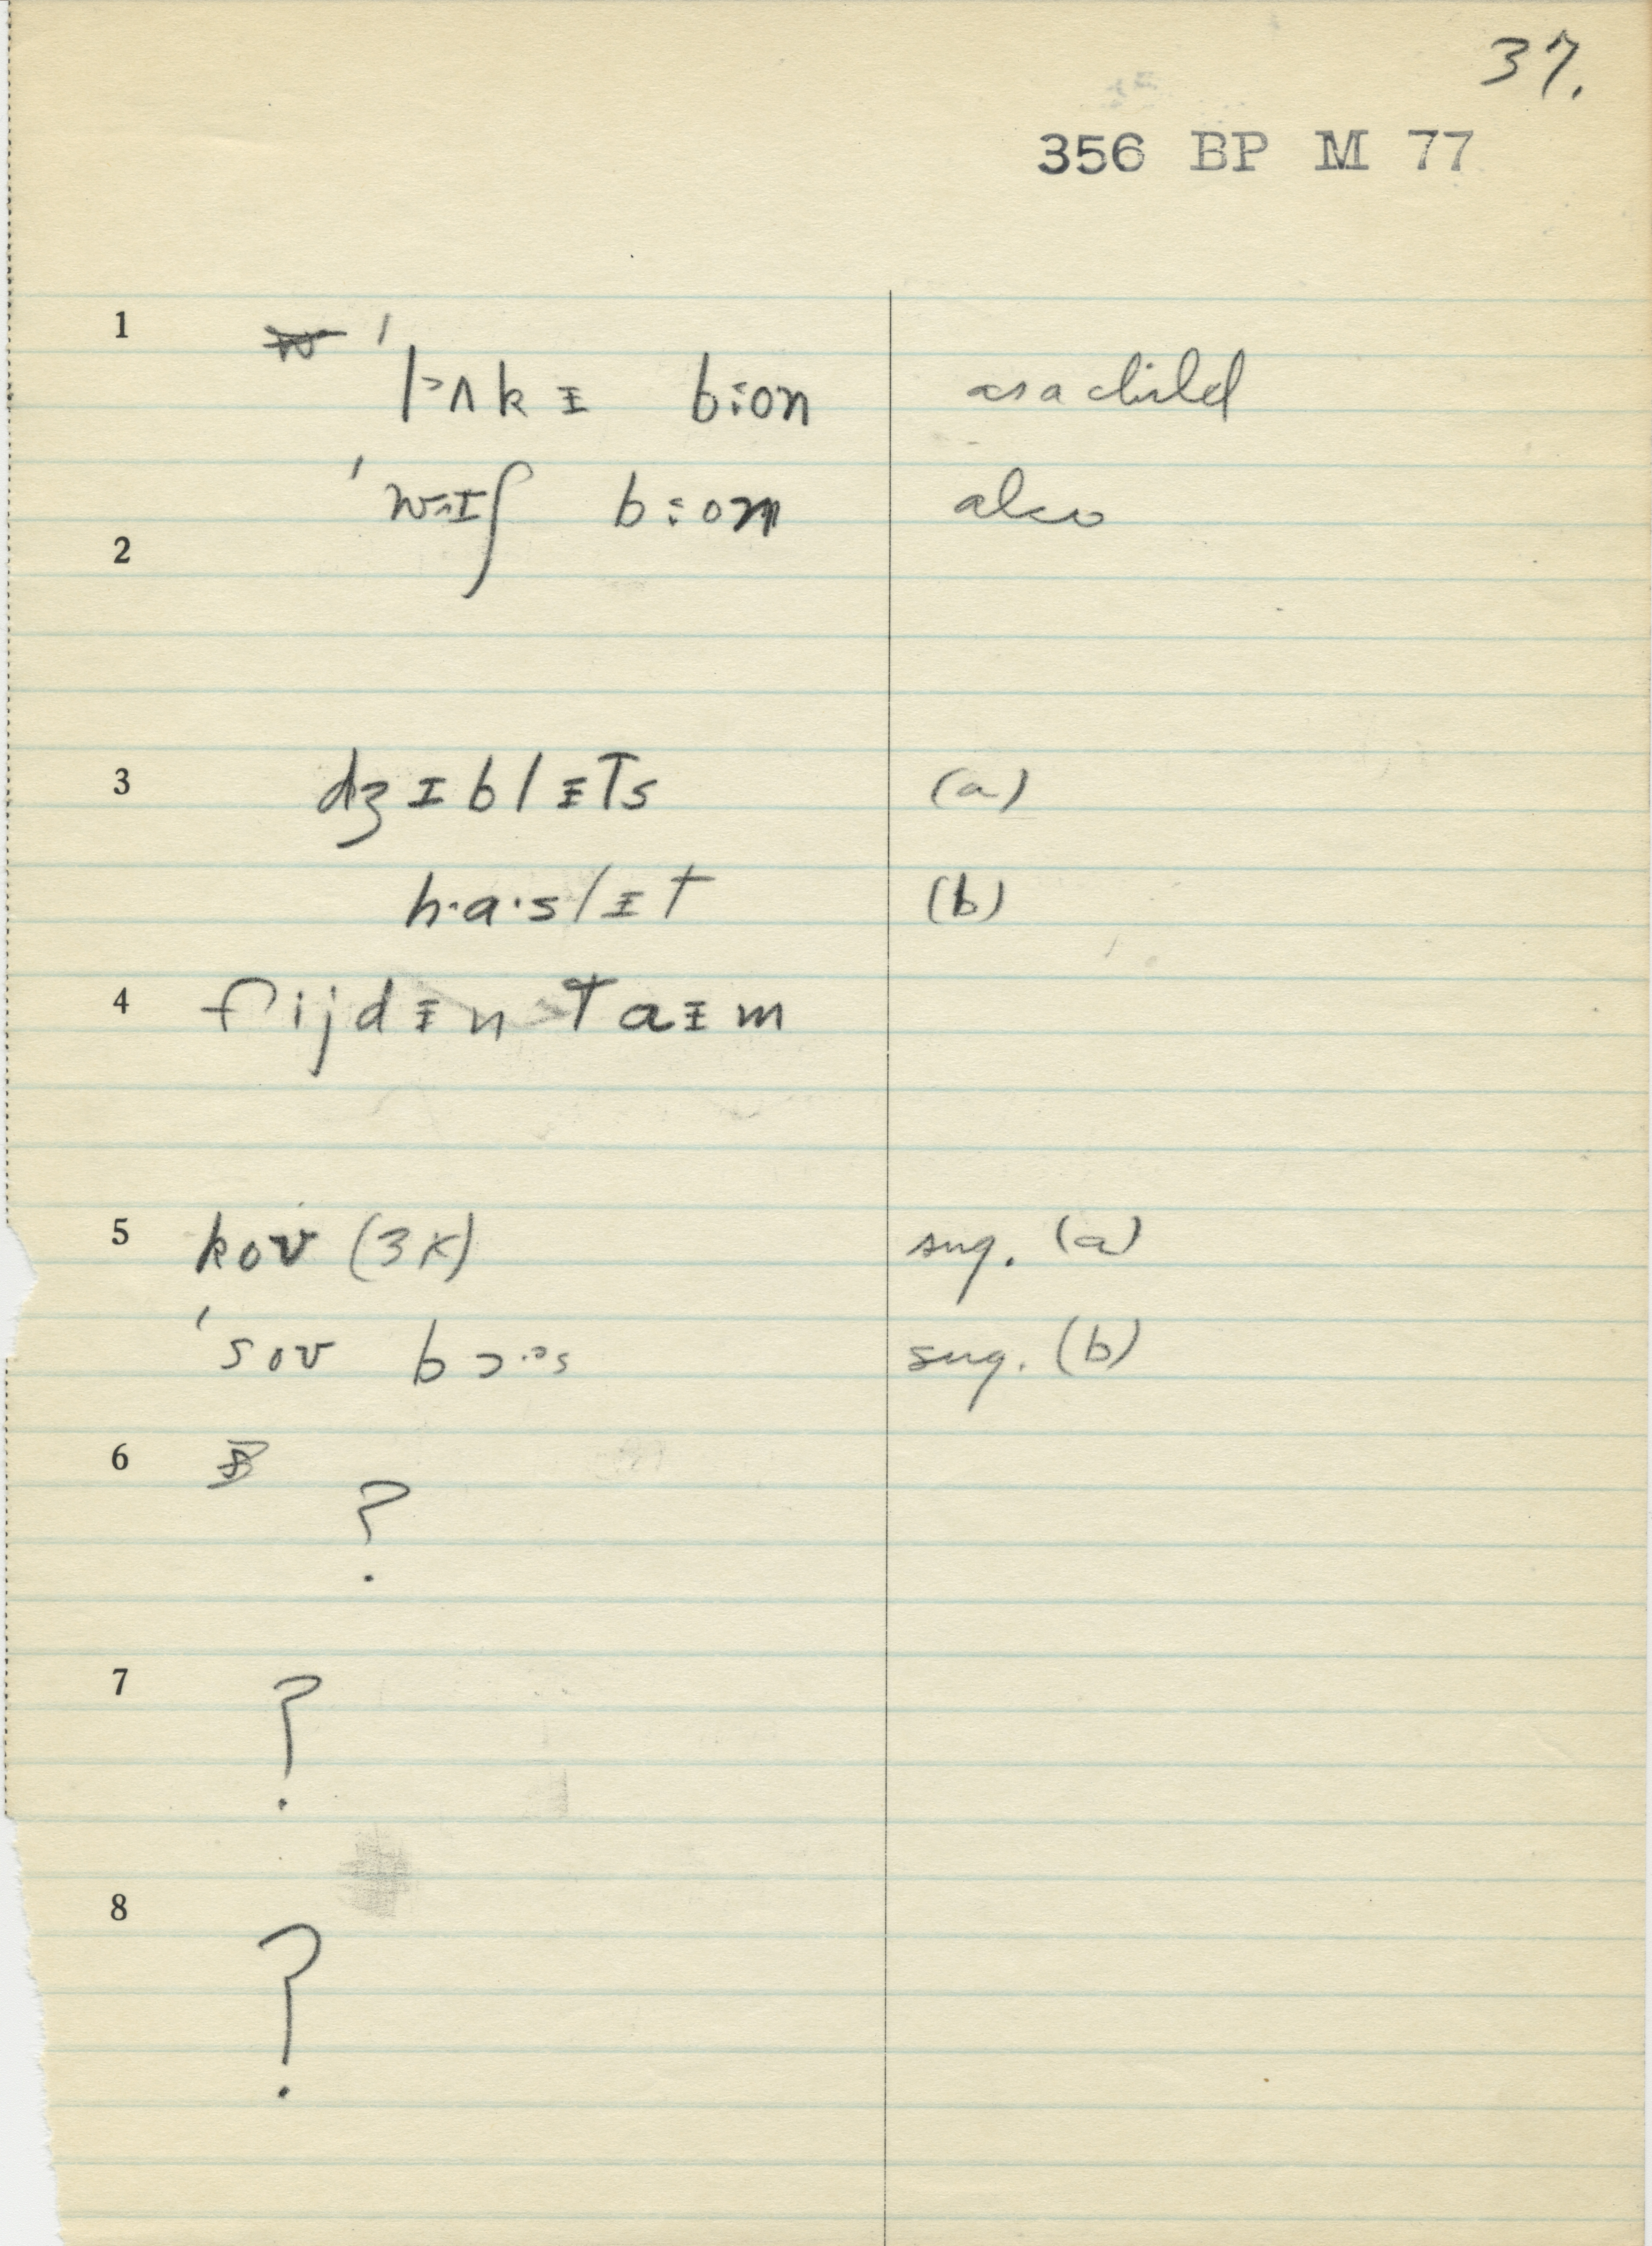 37.
356 BP M 77
1 ˈlʌkɪ b:on as a child
ˈwɪʃ b:on also
2
3 dʒɪblɨTs (a)
h·a·slɨt (b)
4 fijdɨn Taɨm
5 kov (3x) sug. (a)
ˈsov bɔ·ᵊs sug. (b)
6 ?
7 ?
8 ?